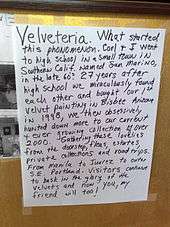 Velveteria. What started
this phonomenon. Carl & I went
to high school in a small town in
Southern Calif. Named San Marino,
in the late 60s. 27 years after
high school we miraculously found
each other and bought our 1st
velvet painting in Bisbee Arizona
in 1998, we then obsessively
hunted down more to our current
& ever growing collection of over
2000. Gathering these lovelies
from thrift stores, estates,
private collections and road trips.
From Manila to Juarez to outer
S.E. Portland. Visitors continue
to bask in the glory of the
velvets and now you, my
friend will too!